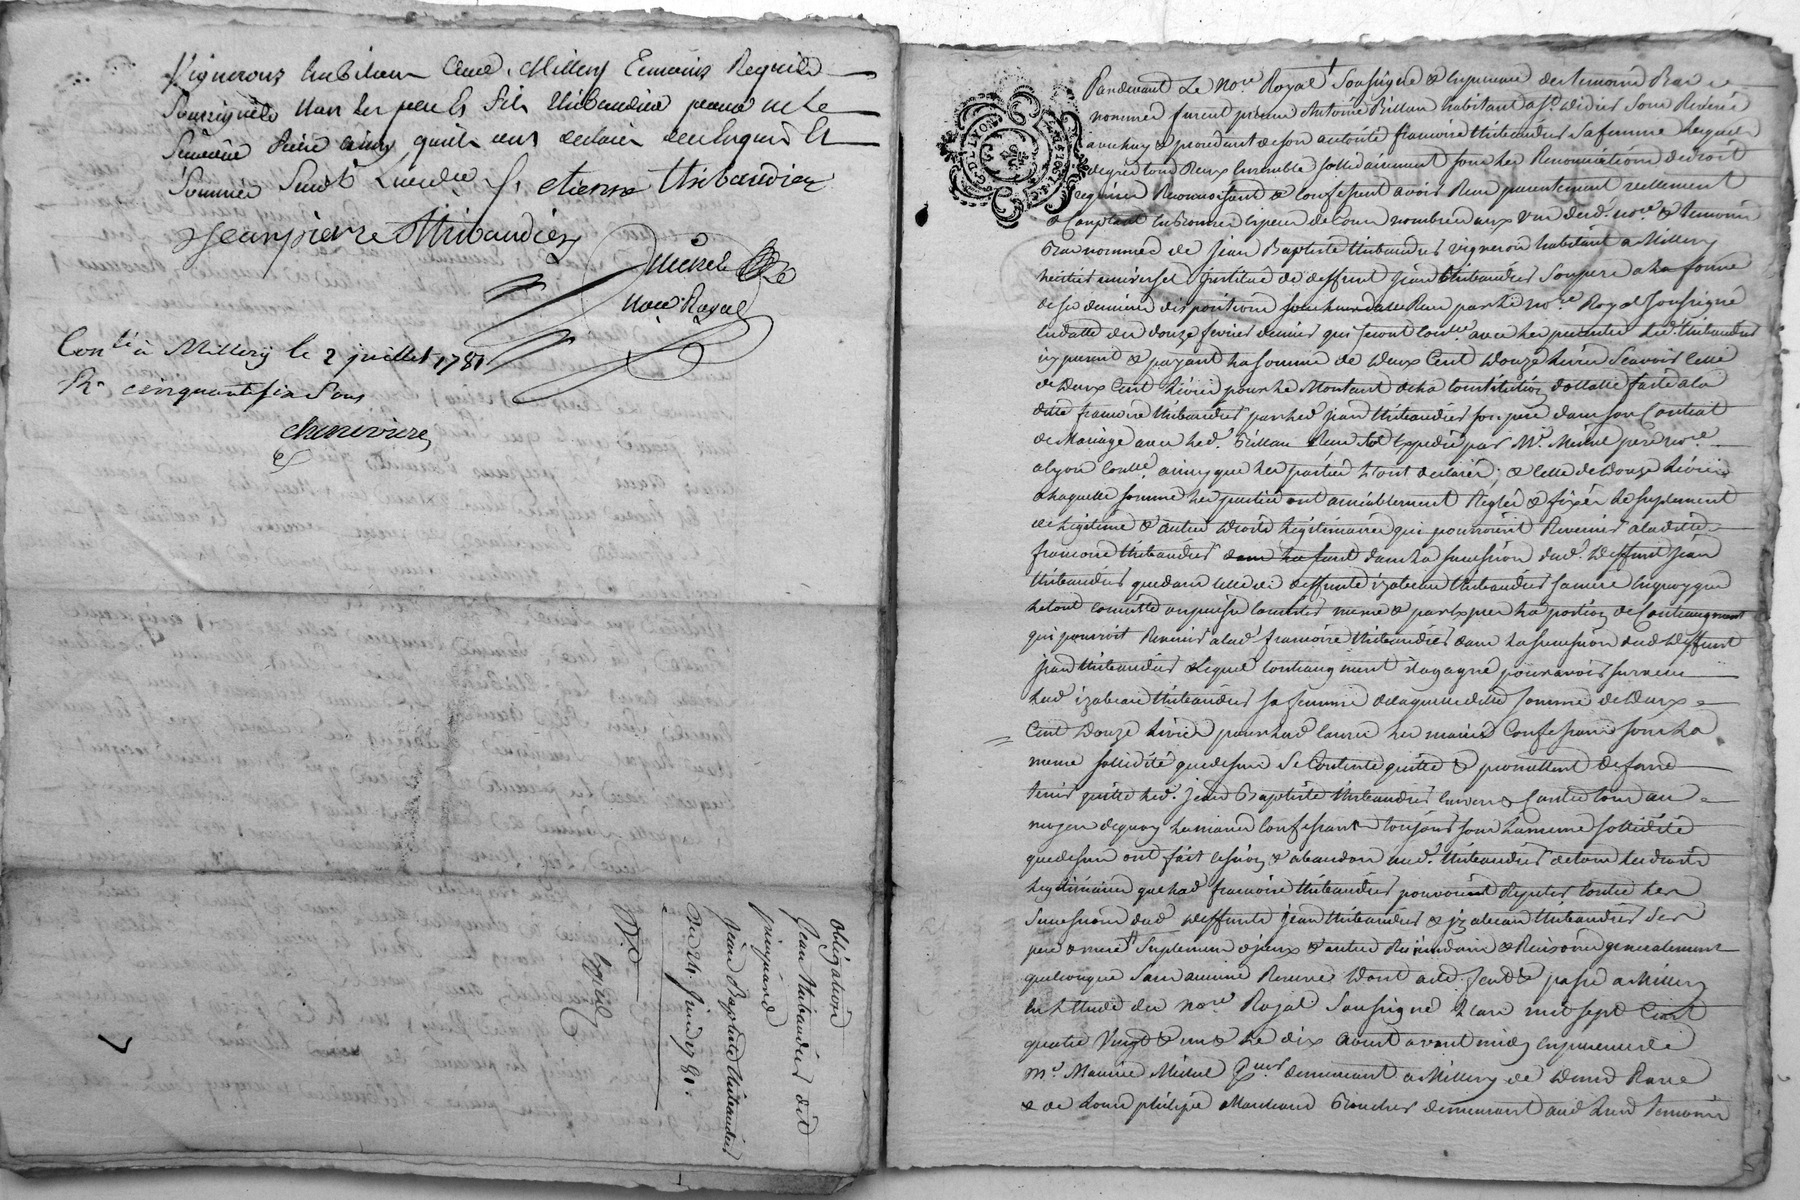 Vignerons habitans aud. Millery temoins Requis
Soussignés non les pere & fils thibaudier pour ne le
scavoir ainsy quils ont declaré de ce Enquis &
Sommés
etienne thibaudier
Jean pierre thibaudier
Michel
No.re Royal
Con.lé à Millery le 2 juillet 1781
R. cinquante six sous
chenivière
obligation
Jean thibaudier dit
Jean Baptiste thibaudier
Du 24. juin 1781.
Expédié
G. DE LYON
Pardevant Le No.re Royal Soussigné & en presence des temoins Bas
nommés furent presens Antoine Billon habitant a St. Didier sous Riverie
& procedant de son autorité françoise thibaudier sa femme
tous deux ensemble sollidairement sous les Renonciations de droit
Requises Reconnoissent & Confessent avoir Reçu presentement reellement
& Comptant en bonnes especes de Cours nombrées aux vue desd. no.re & temoins
Bas nommés de Jean Baptiste thibaudier vigneron habitant a Millery
heritier universel institué de deffunt Jean thibaudier son pere a la forme
de ses dernieres dispositions par le no.re Royal Soussigné
en datte du douze fevrier dernier qui seront con.lé avec les presentes led. thibaudier
icy present & payant la somme de deux Cent douze livres Scavoir Celle
de deux Cent livres pour le Montant de la Constitution dottalle faite a la
ditte françoise thibaudier par led. jean thibaudier son pere dans son Contrat
de Mariage avec led. Billon Reçu & expedié par M.e Michel pere no.re
a lyon con.lé ainsy que les parties l'ont declaré; & Celle de douze livres
a laquelle somme les parties ont amiablement Reglée & fixée le suplement
de legitime & autres droits legitimaires qui pourroient Revenir a laditte
françoise thibaudier dans la succession dud. deffunt Jean
thibaudier que dans celle de deffunte izabeau thibaudier sa mere en quoy que
le tout consiste ou puisse consister meme & par exprès la portion de l'augment
qui pourroit Revenir a lad. françoise thibaudier dans la succession dud. deffunt
jean thibaudier & lequel il a gagné pour avoir survecu
lad. izabeau thibaudier sa femme de laquelle ditte somme de deux
Cent douze livres lesd. mariés Confessants sous la
meme sollidité que dessus Se Contentent quittent & promettent de faire
tenir quitte led. Jean Baptiste thibaudier envers & contre tous au
moyen de quoy les mariés Confessants toujours sous la meme sollidité
que dessus ont fait cession & abandon aud. thibaudier de tous les droits
legitimaires que lad. françoise thibaudier pouvoient Repeter contre les
successions desd. deffunts jean thibaudier & izabeau thibaudier ses
pere & mere suplement d'iceux & autres Rescindants & Rescisoires generalement
quelconques sans aucune Reserve dont acte fait & passé a Millery
en l'Etude du no.re Royal Soussigné l'an mil sept Cent
quatre Vingt & un & le dix Avril avant midy en presence de
M.e Maurice Michel demeurant a Millery
& de Louis philipe Marchand Boucher demeurant aud. lieu temoins